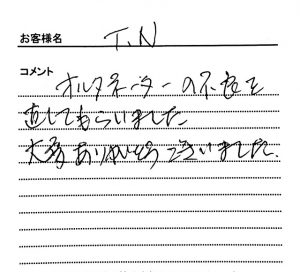 お客様名 T.N
コメント
オルタネーターの不良を
直してもらいました
大変ありがとうございました.